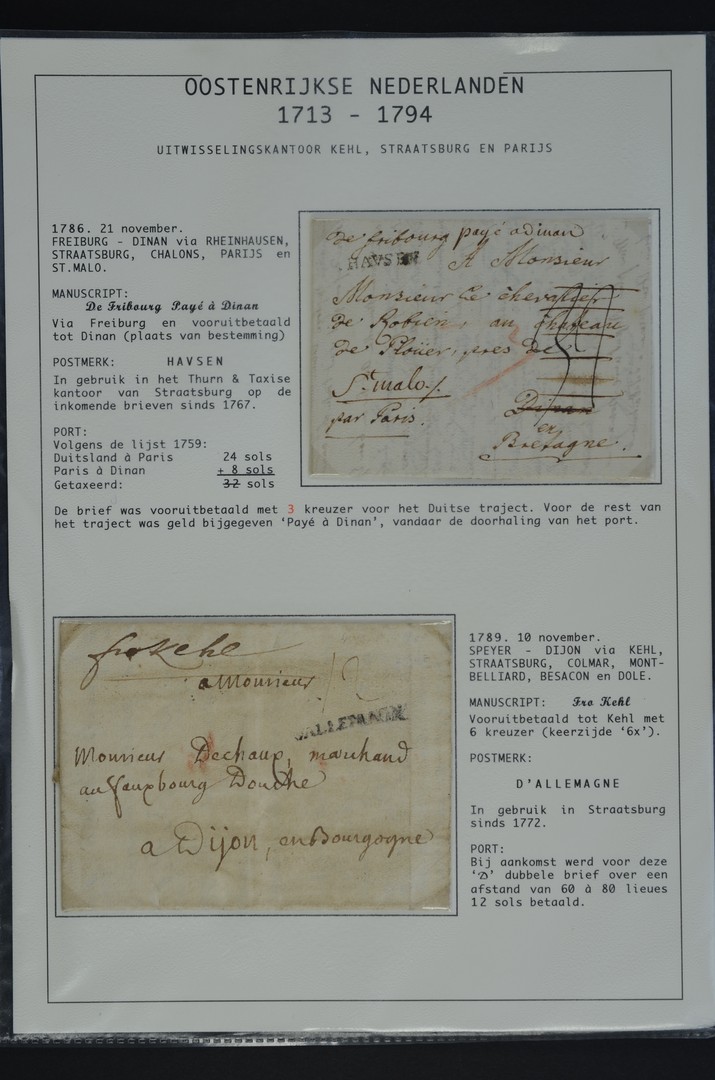 OOSTENRIJKSE NEDERLANDEN
1713 - 1794
UITWISSELINGSKANTOOR KEHL, STRAATSBURG EN PARIJS
1786. 21 november.
FREIBURG - DINAN via RHEINHAUSEN,
STRAATSBURG, CHALONS, PARIJS en
ST.MALO.
MANUSCRIPT:
De Fribourg Payé à Dinan
Via Freiburg en vooruitbetaald
tot Dinan (plaats van bestemming)
POSTMERK: HAVSEN
In gebruik in het Thurn & Taxise
kantoor van Straatsburg op de
inkomende brieven sinds 1767.
PORT:
Volgens de lijst 1759:
Duitsland à Paris 24 sols
Paris à Dinan + 8 sols
Getaxeerd: 32 sols
de fribourg payé a dinan
HAVSEN
A Monsieur
Monsieur Le chevallier
de Robien, au chateau
de Ploüer, pres de
St malo./.
Dinan
par Paris.
en
Bretagne.
De brief was vooruitbetaald met 3 kreuzer voor het Duitse traject. Voor de rest van
het traject was geld bijgegeven ‘Payé à Dinan’, vandaar de doorhaling van het port.
fro Kehl
a Monsieur
12
D'ALLEMAGNE
Monsieur Dechaux, marchand
au fauxbourg Douche
a Dijon, en Bourgogne
1789. 10 november.
SPEYER - DIJON via KEHL,
STRAATSBURG, COLMAR, MONT-
BELLIARD, BESACON en DOLE.
MANUSCRIPT: Fro Kehl
Vooruitbetaald tot Kehl met
6 kreuzer (keerzijde ‘6x’).
POSTMERK:
D'ALLEMAGNE
In gebruik in Straatsburg
sinds 1772.
PORT:
Bij aankomst werd voor deze
‘D’ dubbele brief over een
afstand van 60 à 80 lieues
12 sols betaald.